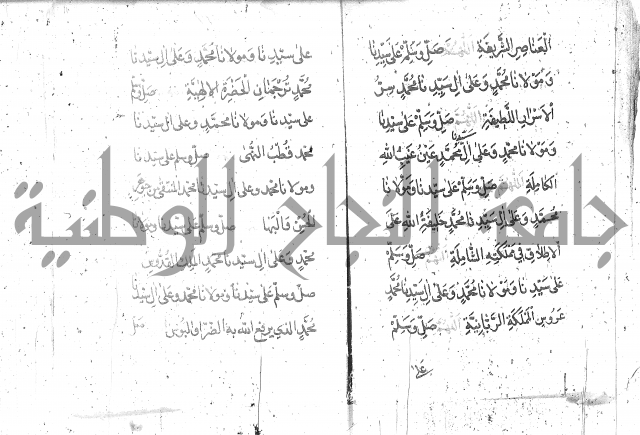 العناصر الشريفة اللهم صل وسلم على سيدنا
ومولانا محمد وعلى ال سيدنا محمد سر
الاسرار اللطيفة اللهم صل وسلم على سيدنا
سيدنا
ومولانا محمد وعلى ال محمد عين غيب الله
الكاملة اللهم صل وسلم على سيدنا ومولانا
محمد وعلى ال سيدنا محمد خليفة الله على
الاطلاق في مملكته الشاملة اللهم صل وسلم
على سيدنا ومولانا محمد وعلى ال سيدنا محمد
عروس المملكة الربانية اللهم صل وسلم
على
على سيدنا ومولانا محمد وعلى ال سيدنا
محمد ترجمان الحضرة الالهية صل وسلم
على سيدنا ومولانا محمد وعلى ال سيدنا
محمد قطب صل وسلم على سيدنا
ومولانا محمد وعلى ال سيدنا محمد
صل وسلم على سيدنا ومولانا
محمد وعلى ال سيدنا محمد الملك
صل وسلم على سيدنا ومولانا محمد وعلى ال سيدنا
محمد الذي يرفع الله به الضر والبؤس صل
جامعة النجاح الوطنية